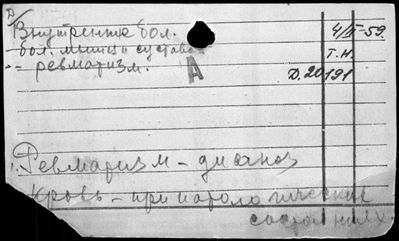 Д/
Внутренние бол. 4/II-59.
бол. мышц и суставов Т.Н.
-"- ревматизм. Д.20191
А
Ревматизм - диагноз
Кровь - при патологических
состояниях